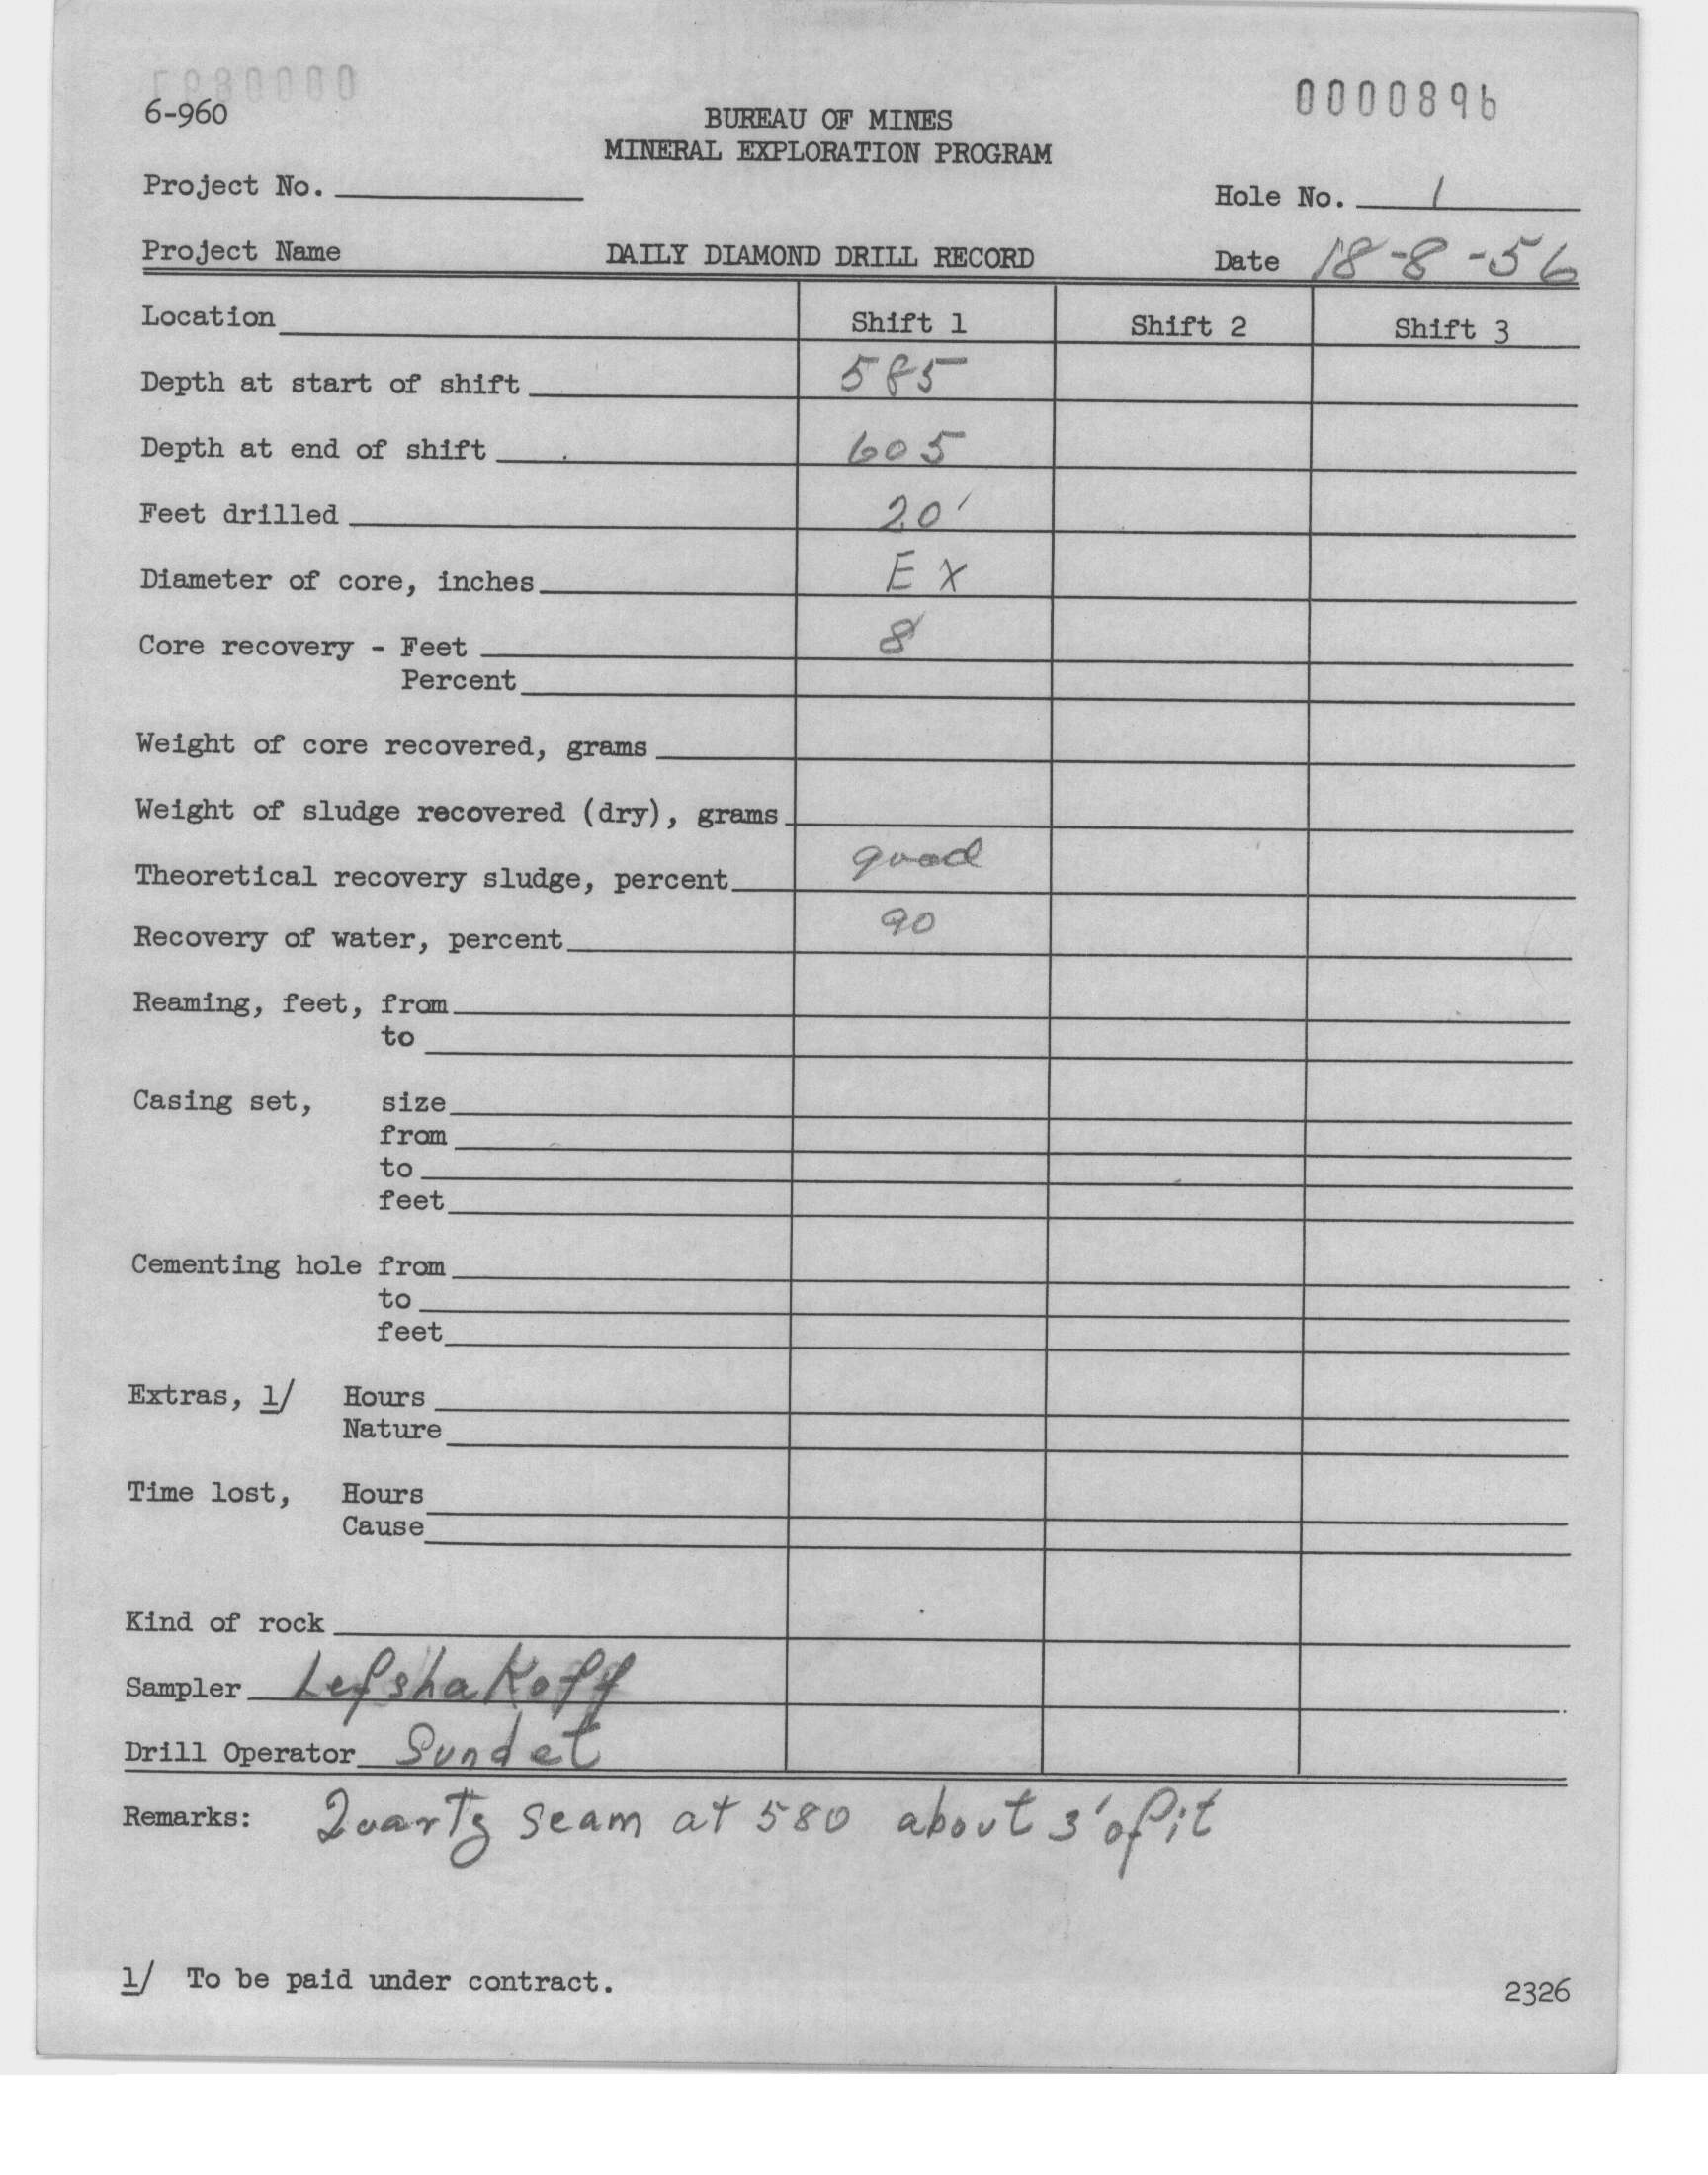 6-960
0000896
BUREAU OF MINES
MINERAL EXPLORATION PROGRAM
Project No.
Hole No. 1
Project Name DAILY DIAMOND DRILL RECORD Date 18-8-56
Location Shift 1 Shift 2 Shift 3
Depth at start of shift 585
Depth at end of shift 605
Feet drilled 20'
Diameter of core, inches EX
Core recovery - Feet 8
Percent
Weight of core recovered, grams
Weight of sludge recovered (dry), grams
Theoretical recovery sludge, percent good
Recovery of water, percent 90
Reaming, feet, from
to
Casing set, size
from
to
feet
Cementing hole from
to
feet
Extras, 1/ Hours
Nature
Time lost, Hours
Cause
Kind of rock
Sampler Lefshakoff
Drill Operator Sundet
Remarks: Quartz seam at 580 about 3' of it
1/ To be paid under contract.
2326